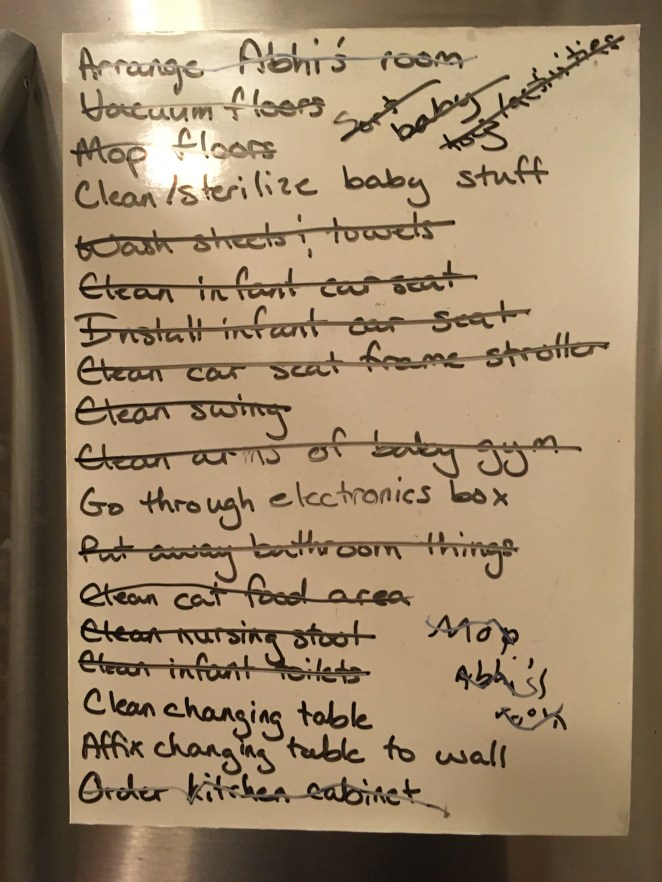 Arrange Abhi's room
Vacuum floors
Sort baby toys
Mop floors
Clean/sterilize baby stuff
Wash sheets, towels
Clean infant car seat
Install infant car seat
Clean car seat frame stroller
Clean swing
Clean arms of baby gym
Go through electronics box
Put away bathroom things
Clean cat food area
Clean nursing stool
Clean infant toilets
Mop
Abhi's
room
Clean changing table
Affix changing table to wall
Order kitchen cabinet